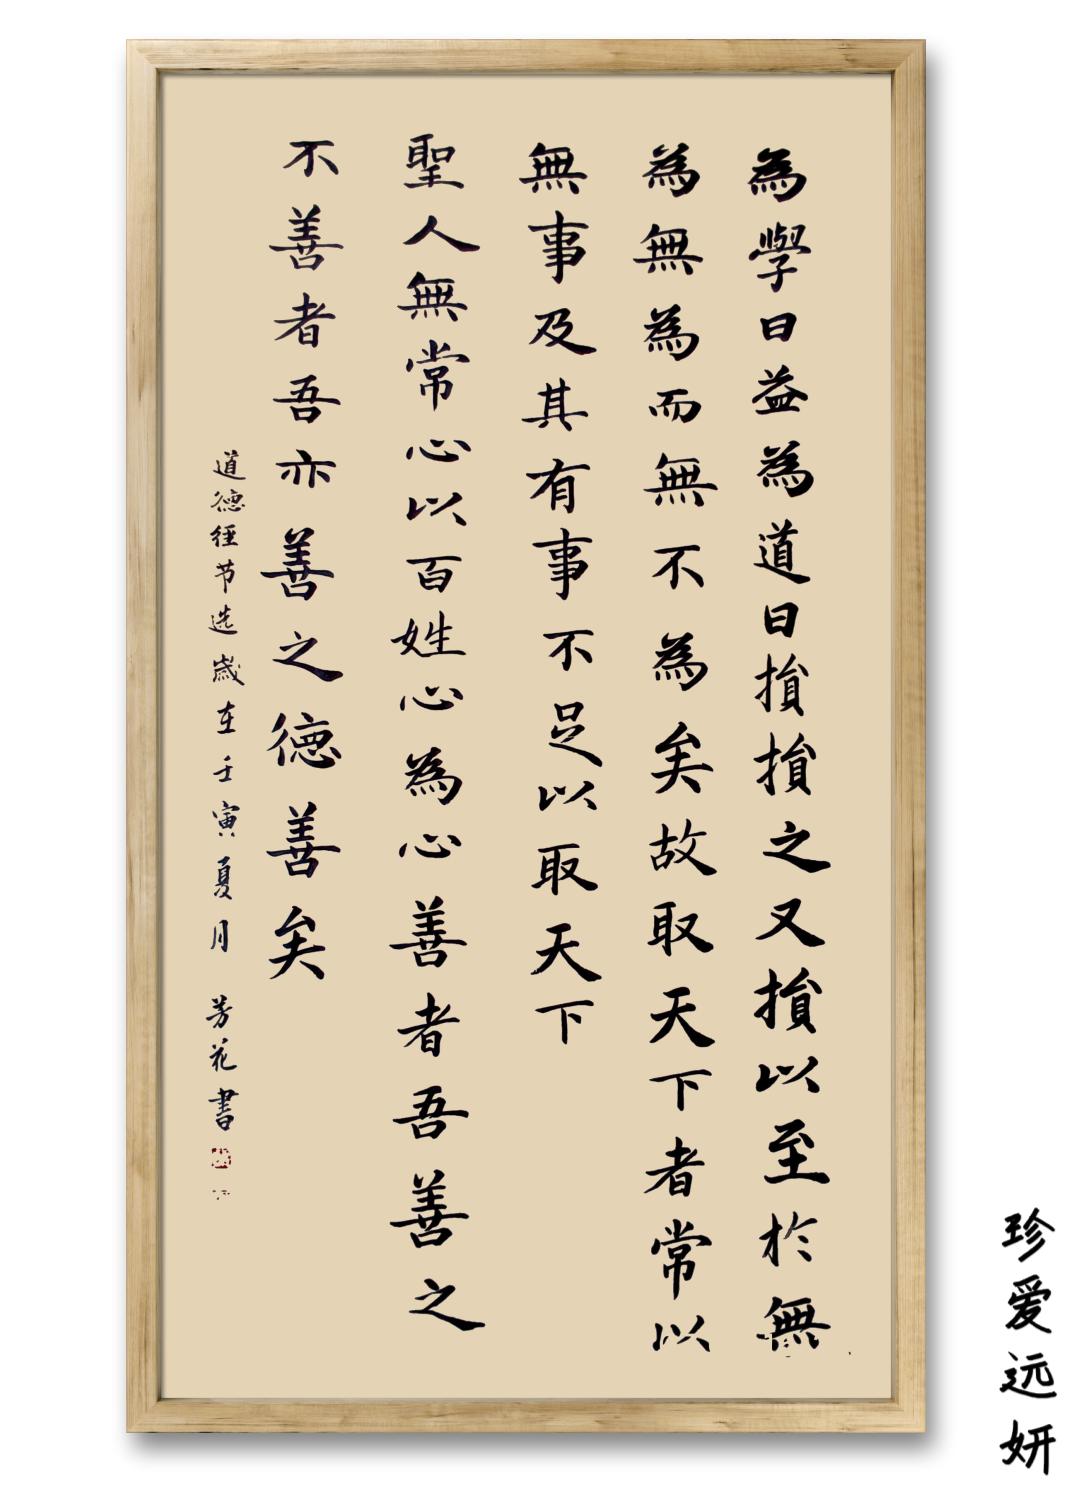 為學日益為道日損損之又損以至於無
為無為而無不為矣故取天下者常以
無事及其有事不足以取天下
聖人無常心以百姓心為心善者吾善之
不善者吾亦善之德善矣
道德径节选岁在壬寅夏月 芳花書
珍爱远妍